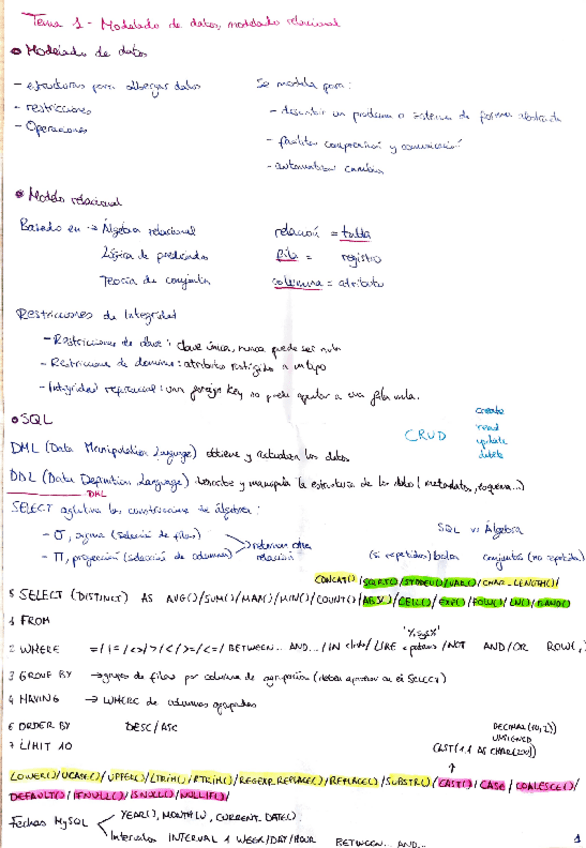 Tema 1 - Modelado de datos, modelado relacional
• Modelado de datos
- estructuras para albergar datos
- restricciones
- Operaciones
Se modela para:
- describir un problema o sistema de forma abstracta
- facilitar comprensión y comunicación
- automatizar cambios
• Modelo relacional
Basado en → Álgebra relacional
Lógica de predicados
Teoría de conjuntos
relación = tabla
fila = registro
columna = atributo
Restricciones de Integridad
- Restricciones de clave: clave única, nunca puede ser nula
- Restricciones de dominio: atributos restringidos a un tipo
- Integridad referencial: una foreign key no puede apuntar a una fila nula.
• SQL
CRUD
create
read
update
delete
DML (Data Manipulation Language) obtiene y actualiza los datos
DDL (Data Definition Language) y manipula la estructura de los datos (metadatos, esquema...)
DML
SELECT aglutina las construcciones de álgebra:
- σ, sigma (selección de filas)
- π, proyección (selección de columnas)
retornan otra relación
SQL vs Álgebra
(si repetidos) conjuntos (no repetidos)
CONCAT()/SQRT()/STDEV()/VAR()/CHAR_LENGTH()/
5 SELECT (DISTINCT) AS AVG()/SUM()/MAX()/MIN()/COUNT()/ABS()/CEIL()/EXP()/FLOOR()/LN()/RAND()
1 FROM
2 WHERE =/!=/<>/>/</>=/<=/ BETWEEN... AND.../IN /LIKE /NOT AND/OR ROW( , )
3 GROUP BY → grupos de filas por columna de agrupación (deben aparecer en el SELECT)
4 HAVING → WHERE de columnas agrupadas
6 ORDER BY DESC/ASC
7 LIMIT 10
DECIMAL(10,2)
UNSIGNED
CAST(1.1 AS CHAR(20))
LOWER()/UCASE()/UPPER()/LTRIM()/RTRIM()/REGEXP_REPLACE()/REPLACE()/SUBSTR()/CAST()/CASE/COALESCE()/
DEFAULT()/IFNULL()/ISNULL()/NULLIF()/
Fechas MySQL
YEAR(), MONTH(), CURRENT_DATE()
Intervalos INTERVAL 1 WEEK/DAY/HOUR BETWEEN... AND...
1